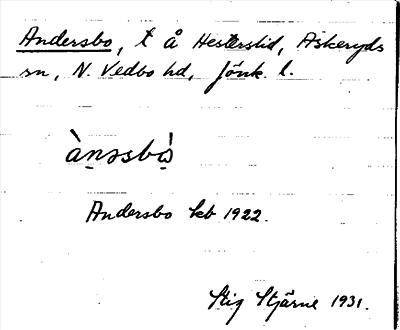 Andersbo, t å Hesterstid, Askeryds
sn, N. Vedbo hd, Jönk. l.
ànəsbò̩
Andersbo kb 1922.
Stig Stjärne 1931.